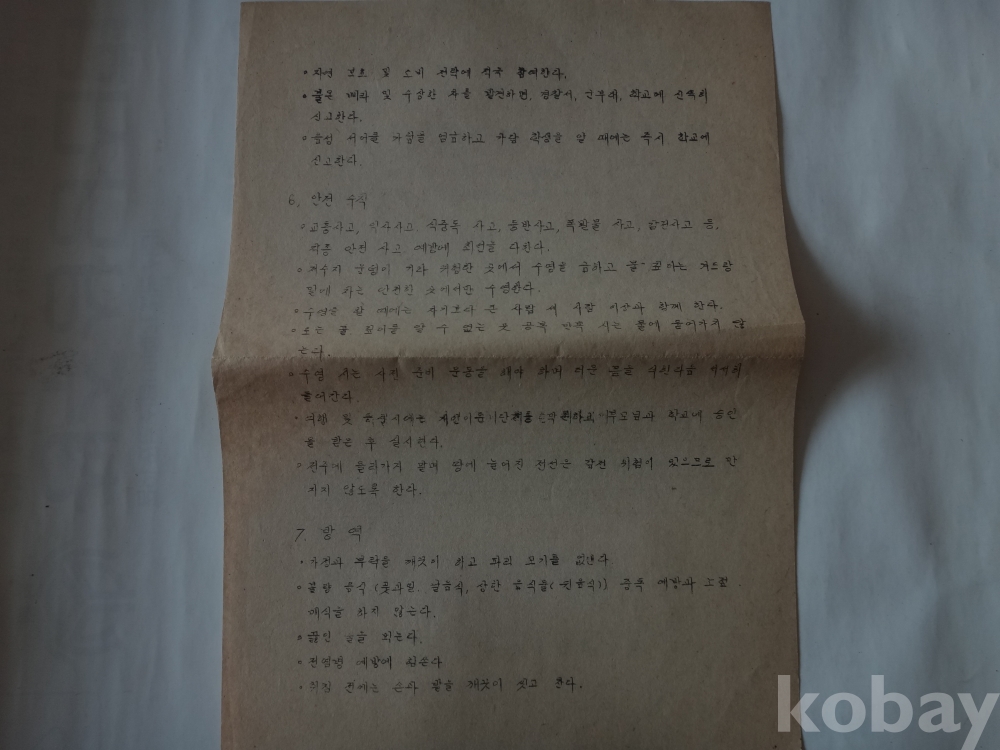 ◦ 자연 보호 및 소비 절약에 적극 참여한다.
◦ 불온 삐라 및 수상한 자를 발견하면, 경찰서, 군부대, 학교에 신속히
신고한다.
◦ 음성 서어클 가입을 엄금하고 가담 학생을 알 때에는 즉시 학교에
신고한다.
6. 안전 수칙
◦ 교통사고, 익사사고 식중독 사고, 등반사고, 폭발물 사고, 감전사고 등,
각종 안전 사고 예방에 최선을 다한다.
◦ 저수지 웅덩이 기타 위험한 곳에서 수영을 금하고 물이 흐르는 개울
밑에 파는 안전한 곳에서만 수영한다.
◦ 수영을 할 때에는 자기보다 큰 사람 세 사람 이상과 함께 한다.
◦ 모든 물 깊이를 알 수 없는 곳 공복 만복 시는 물에 들어가지 않
는다.
◦ 수영 시는 사전 준비 운동을 해야 하며 더운 몸을 식힌다음 서서히
들어간다.
◦ 여행 및 학교에 승인
을 받은 후 실시한다.
◦ 전주에 올라가거나 땅에 늘어진 전선은 감전 위험이 있으므로 만
지지 않도록 한다.
7. 방 역
◦ 가정과 부락을 깨끗이 하고 파리 모기를 없앤다
◦ 불량 음식 (풋과일. 날음식, 상한 음식물( 찬음식)) 중독 예방과 노점
매식을 하지 않는다.
◦ 끓인 물을 먹는다.
◦ 전염병 예방에 힘쓴다
◦ 취침 전에는 손과 발을 깨끗이 씻고 잔다.
kobay